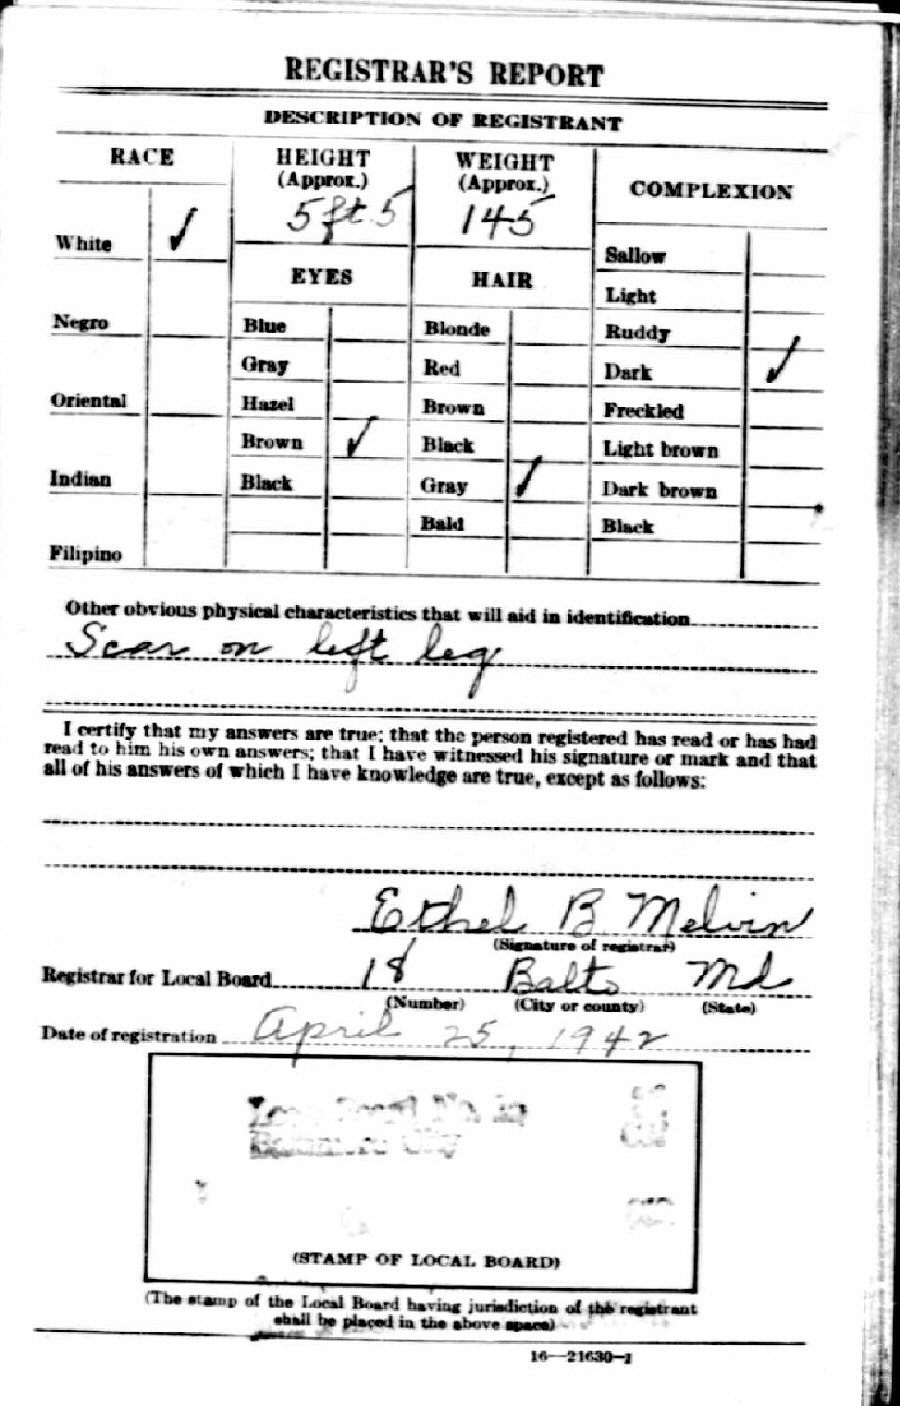 REGISTRAR'S REPORT
DESCRIPTION OF REGISTRANT
RACE
HEIGHT
(Approx.)
WEIGHT
(Approx.)
COMPLEXION
5 ft. 5
145
White ✓
EYES
HAIR
Sallow
Light
Negro
Blue
Blonde
Ruddy
Gray
Red
Dark ✓
Oriental
Hazel
Brown
Freckled
Brown ✓
Black
Light brown
Indian
Black
Gray ✓
Dark brown
Bald
Black
Filipino
Other obvious physical characteristics that will aid in identification
Scar on left leg
I certify that my answers are true; that the person registered has read or has had
read to him his own answers; that I have witnessed his signature or mark and that
all of his answers of which I have knowledge are true, except as follows:
Ethel B Melvin
(Signature of registrar)
Registrar for Local Board 18 Balto Md
(Number) (City or county) (State)
Date of registration April 25, 1942
Baltimore City
(STAMP OF LOCAL BOARD)
(The stamp of the Local Board having jurisdiction of the registrant
shall be placed in the above space)
16—21630-1